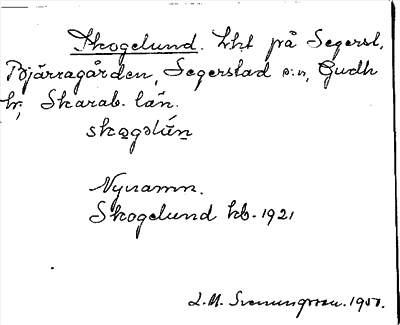 Skogelund. Lht på Segerst.
Bjärragården, Segerstad s:n, Gudh
hr, Skarab. län.
skogəlún
Nynamn.
Skogelund kb. 1921
L. M. Svenungsson. 1950.